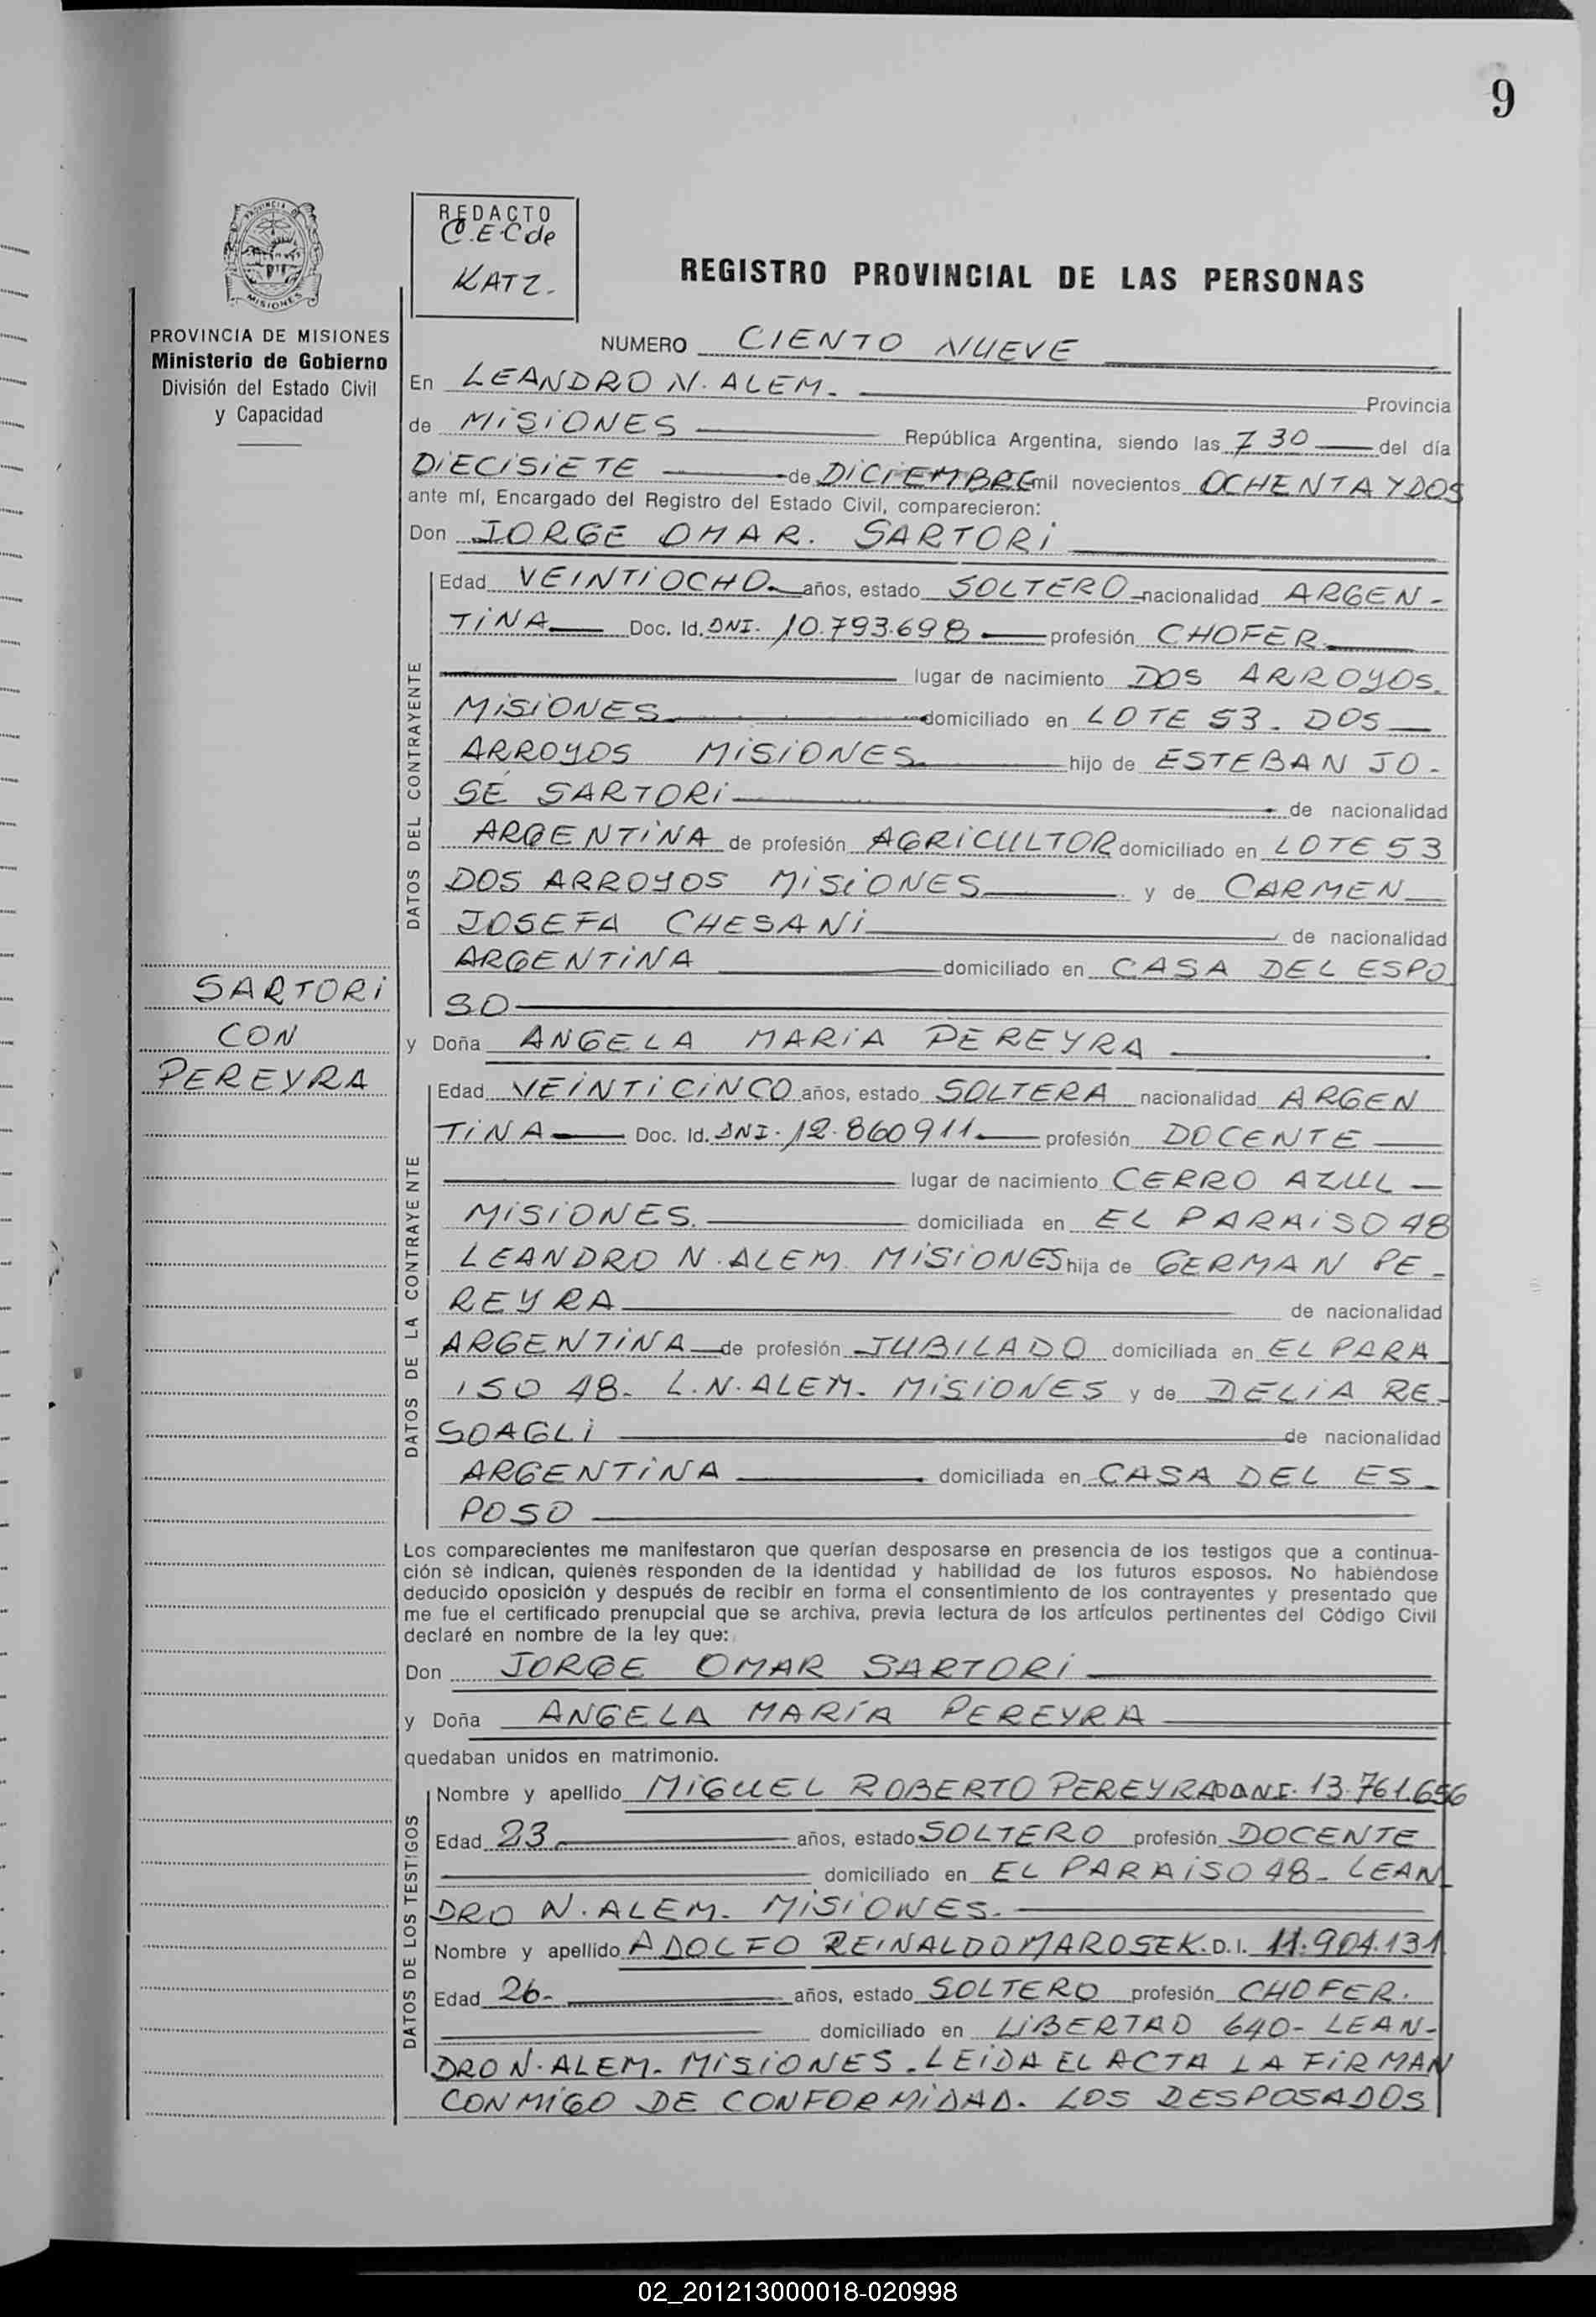 9
PROVINCIA DE MISIONES
PROVINCIA DE MISIONES
Ministerio de Gobierno
División del Estado Civil
y Capacidad
REDACTO
C.E.C de
KATZ.
REGISTRO PROVINCIAL DE LAS PERSONAS
NUMERO CIENTO NUEVE
En LEANDRO N. ALEM. Provincia
de MISIONES República Argentina, siendo las 7 30 del día
DIECISIETE de DICIEMBRE mil novecientos OCHENTA Y DOS
ante mí, Encargado del Registro del Estado Civil, comparecieron:
Don JORGE OMAR. SARTORI
DATOS DEL CONTRAYENTE
Edad VEINTIOCHO años, estado SOLTERO nacionalidad ARGEN-
TINA Doc. Id. DNI. 10.793.698 profesión CHOFER.
lugar de nacimiento DOS ARROYOS.
MISIONES. domiciliado en LOTE 53. DOS
ARROYOS MISIONES. hijo de ESTEBAN JO-
SÉ SARTORI de nacionalidad
ARGENTINA de profesión AGRICULTOR domiciliado en LOTE 53
DOS ARROYOS MISIONES y de CARMEN
JOSEFA CHESANI de nacionalidad
ARGENTINA domiciliado en CASA DEL ESPO
SO
SARTORI
CON
PEREYRA
y Doña ANGELA MARIA PEREYRA
DATOS DE LA CONTRAYENTE
Edad VEINTICINCO años, estado SOLTERA nacionalidad ARGEN
TINA Doc. Id. DNI. 12.860911 profesión DOCENTE
lugar de nacimiento CERRO AZUL
MISIONES. domiciliada en EL PARAISO 48
LEANDRO N. ALEM. MISIONES hija de GERMAN PE-
REYRA de nacionalidad
ARGENTINA de profesión JUBILADO domiciliada en EL PARA
ISO 48. L.N. ALEM. MISIONES y de DELIA RE-
SOAGLI de nacionalidad
ARGENTINA domiciliada en CASA DEL ES-
POSO
Los comparecientes me manifestaron que querían desposarse en presencia de los testigos que a continua-
ción sè indican, quienès rèsponden de la identidad y habilidad de los futuros esposos. No habiéndose
deducido oposición y después de recibir en forma el consentimiento de los contrayentes y presentado que
me fue el certificado prenupcial que se archiva, previa lectura de los artículos pertinentes del Código Civil
declaré en nombre de la ley que:
Don JORGE OMAR SARTORI
y Doña ANGELA MARÍA PEREYRA
quedaban unidos en matrimonio.
DATOS DE LOS TESTIGOS
Nombre y apellido MIGUEL ROBERTO PEREYRA DNI. 13.761.656
Edad 23 años, estado SOLTERO profesión DOCENTE
domiciliado en EL PARAISO 48- LEAN
DRO N. ALEM. MISIONES.
Nombre y apellido ADOLFO REINALDO MAROSEK. D.I. 11.904.131
Edad 26- años, estado SOLTERO profesión CHOFER.
domiciliado en LIBERTAD 640- LEAN-
DRO N. ALEM. MISIONES. LEIDA EL ACTA LA FIRMAN
CONMIGO DE CONFORMIDAD. LOS DESPOSADOS
02_201213000018-020998